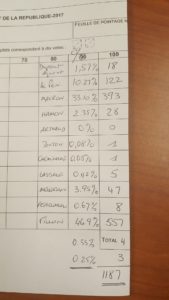 T DE LA REPUBLIQUE-2017
FEUILLE DE POINTAGE
70 80 90 100
Dupont Aignan 1,51% 18
Le Pen 10.27% 122
MACRON 33.10% 393
HAMON 2.35% 28
ARTHAUD 0% 0
POUTOU 0,08% 1
CHEMINADE 0,08% 1
LASSALLE 0,42% 5
MELENCHON 3.95% 47
ASSELINEAU 0.67% 8
FILLON 46.9% 557
0.33% TOTAL 4
0.25% 3
1187